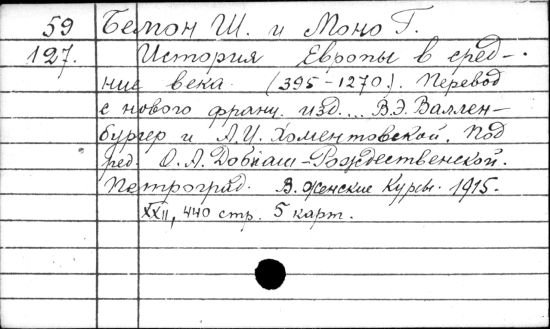 59 Бемон Ш. и Моно Г.
127. История Европы в сред-
ние века (395-1270). Перевод
с нового франц. изд.... В.Э. Валлен-
бургер и А.И. Хоментовской. Под
ред. О.А. Добиаш-Рождественской.
Петроград. В. Женские Курсы. 1915.
XXII, 440 стр. 5 карт.